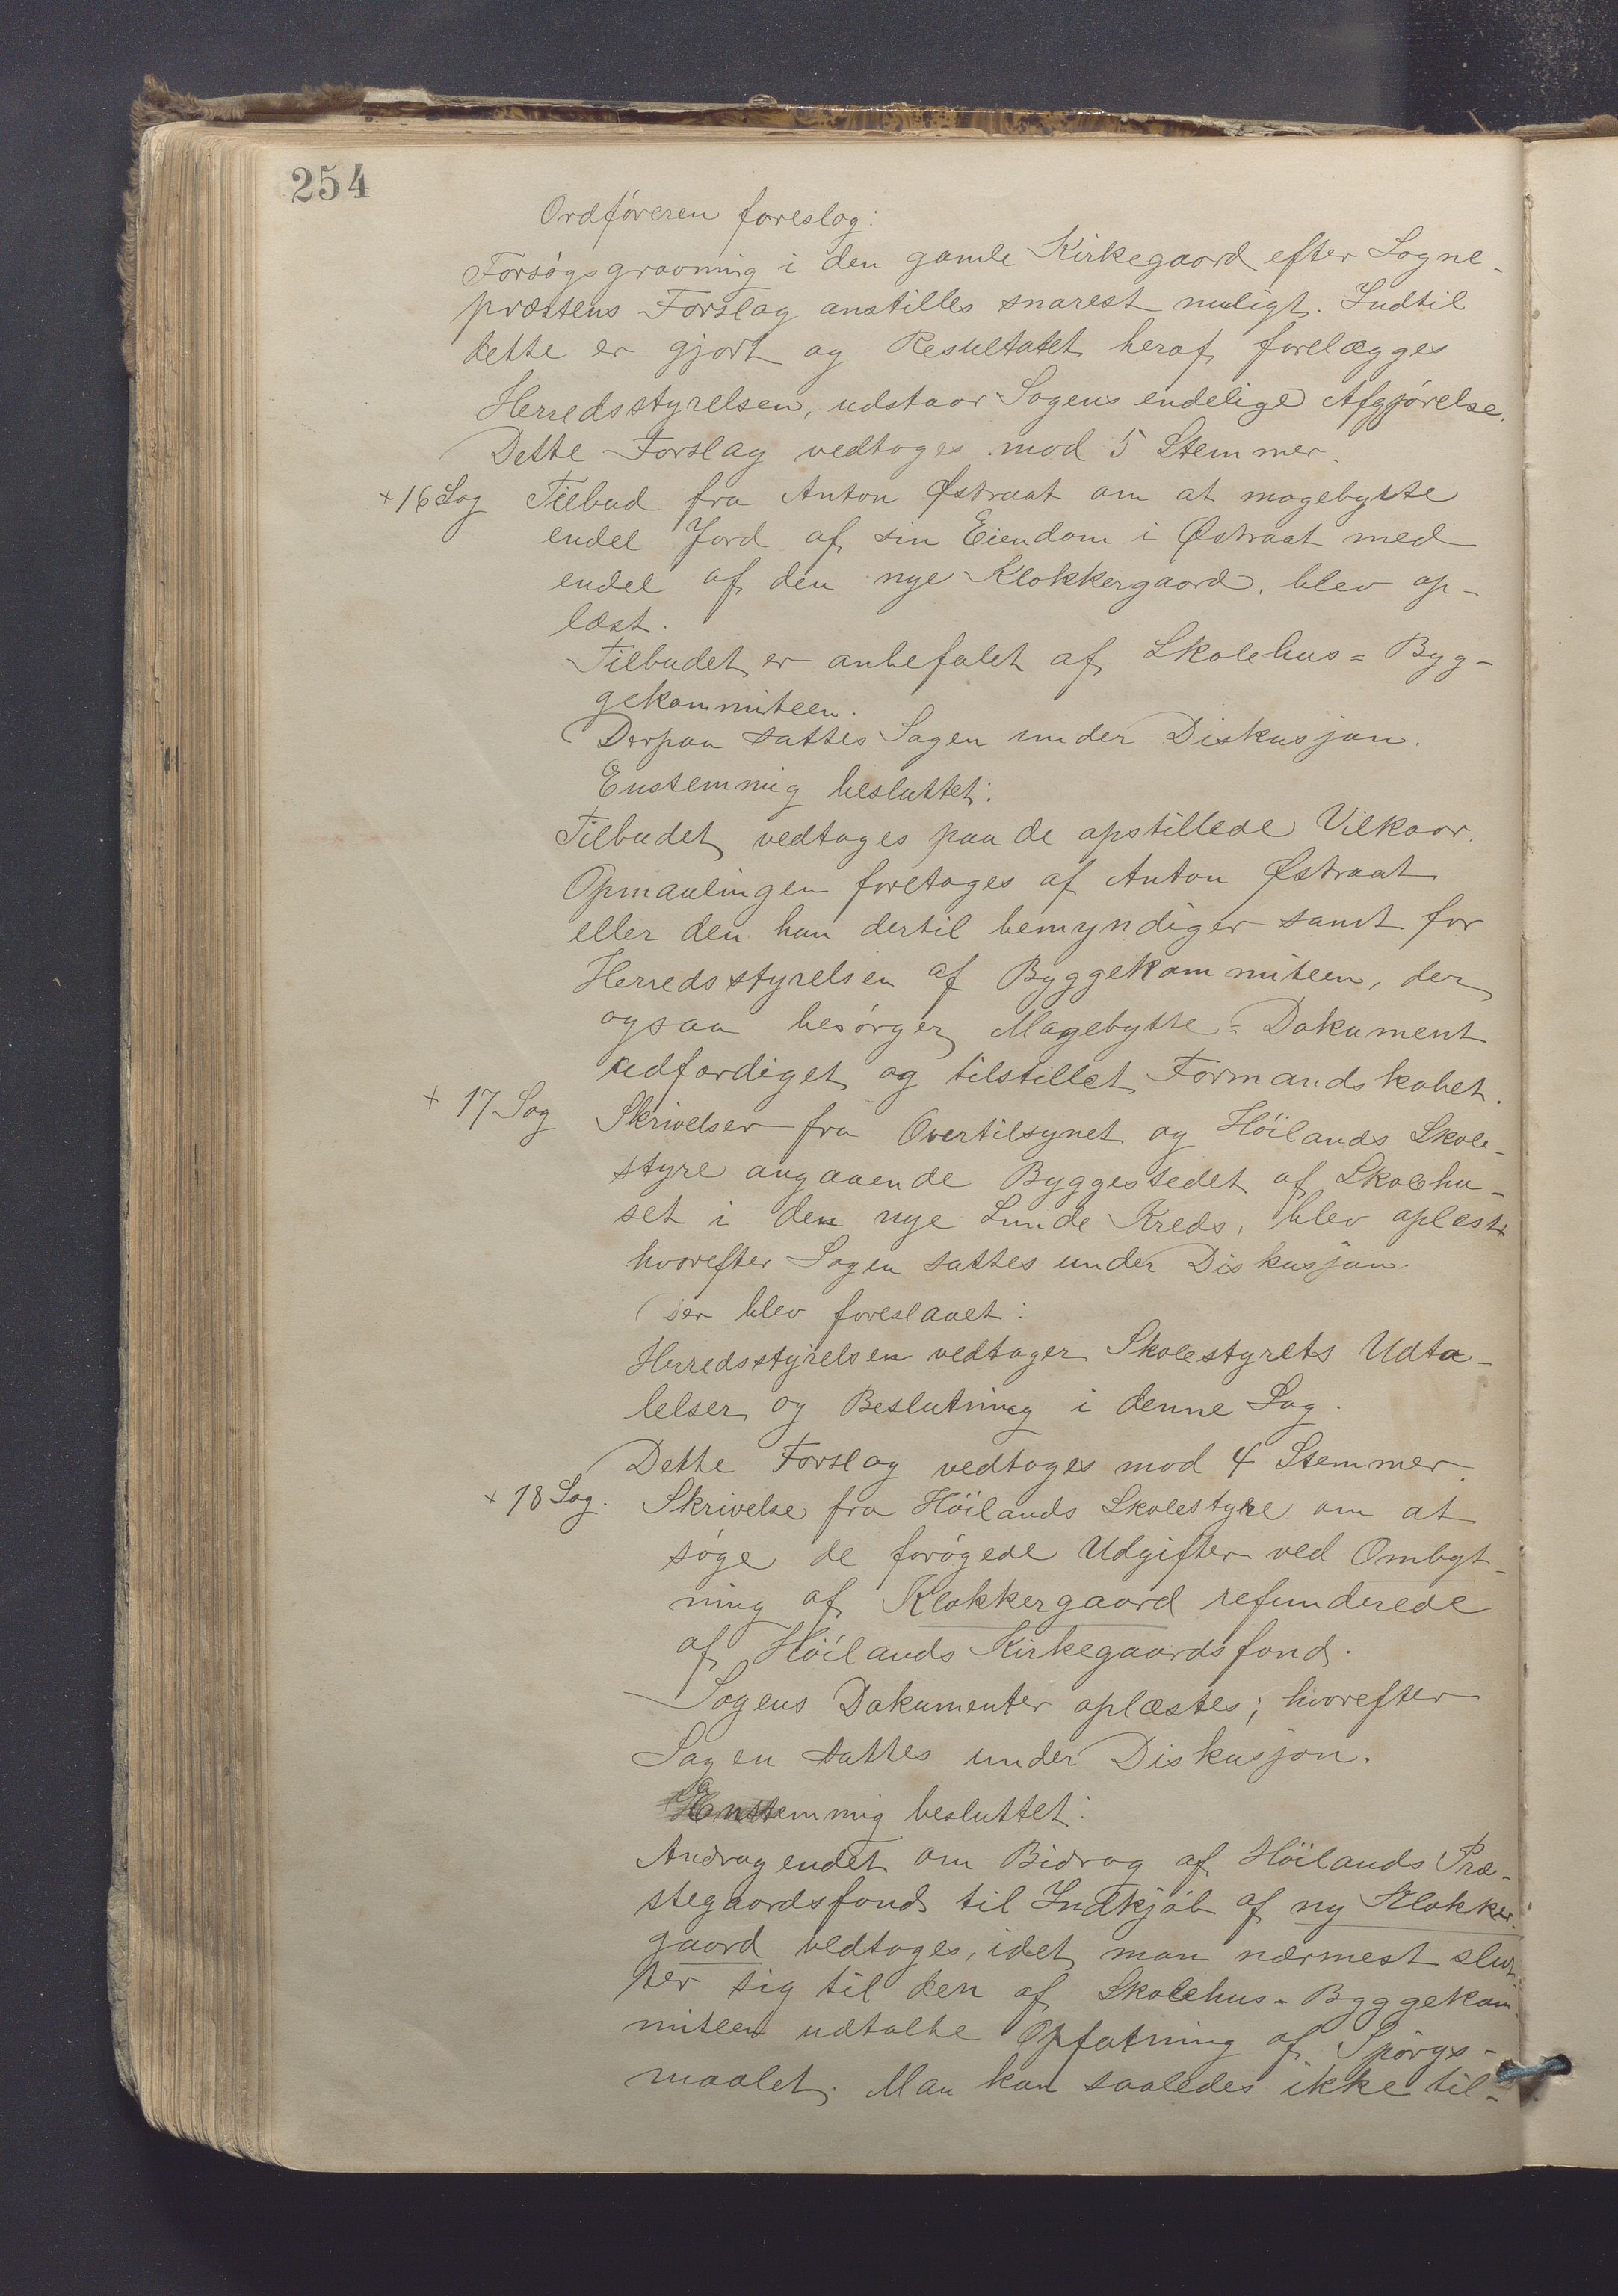 254
Ordföreren foreslog:
Forsögsgravning i den gamle Kirkegaard efter Sogne-
præstens Forslag anstilles snarest muligt. Indtil
dette er gjort og Resultatet heraf forelægges
Herredsstyrelsen, udstaar Sagens endelige Afgjörelse.
Dette Forslag vedtoges mod 5 Stemmer.
+ 16 Sag Tilbud fra Anton Østraat om at magebytte
endel Jord af sin Eiendom i Østraat med
endel af den nye Klokkergaard, blev op-
læst.
Tilbudet er anbefalet af Skolehus=Byg-
gekommiteen.
Derpaa sattes Sagen under Diskusjon.
Enstemmig besluttet:
Tilbudet vedtages paa de opstillede Vilkaar.
Opmaalingen foretages af Anton Østraat
eller den han dertil bemyndiger samt for
Herredsstyrelsen af Byggekommiteen, der
ogsaa besörger Magebytte=Dokument
udfærdiget og tilstillet Formandskabet.
+ 17 Sag Skrivelser fra Overtilsynet og Höilands Skole-
styre angaaende Byggestedet af Skolehu-
set i den nye Lunde Kreds, blev oplæst
hvorefter Sagen sattes under Diskusjon.
Der blev foreslaaet:
Herredsstyrelsen vedtager Skolestyrets Udta-
lelser og Beslutning i denne Sag.
Dette Forslag vedtoges mod 4 Stemmer.
+ 18 Sag. Skrivelse fra Höilands Skolestyre om at
söge de forögede Udgifter ved Ombyt-
ning af Klokkergaard refunderede
af Höilands Kirkegaardsfond.
Sagens Dokumenter oplæstes; hvorefter
Sagen sattes under Diskusjon.
Enstemmig besluttet:
Andragendet om Bidrag af Höilands Præ-
stegaardsfond til Indkjöb af ny Klokker-
gaard vedtages, idet man nærmest slut-
ter sig til den af Skolehus-Byggekom-
miteen udtalte Opfatning af Spörgs-
maalet. Man kan saaledes ikke til-